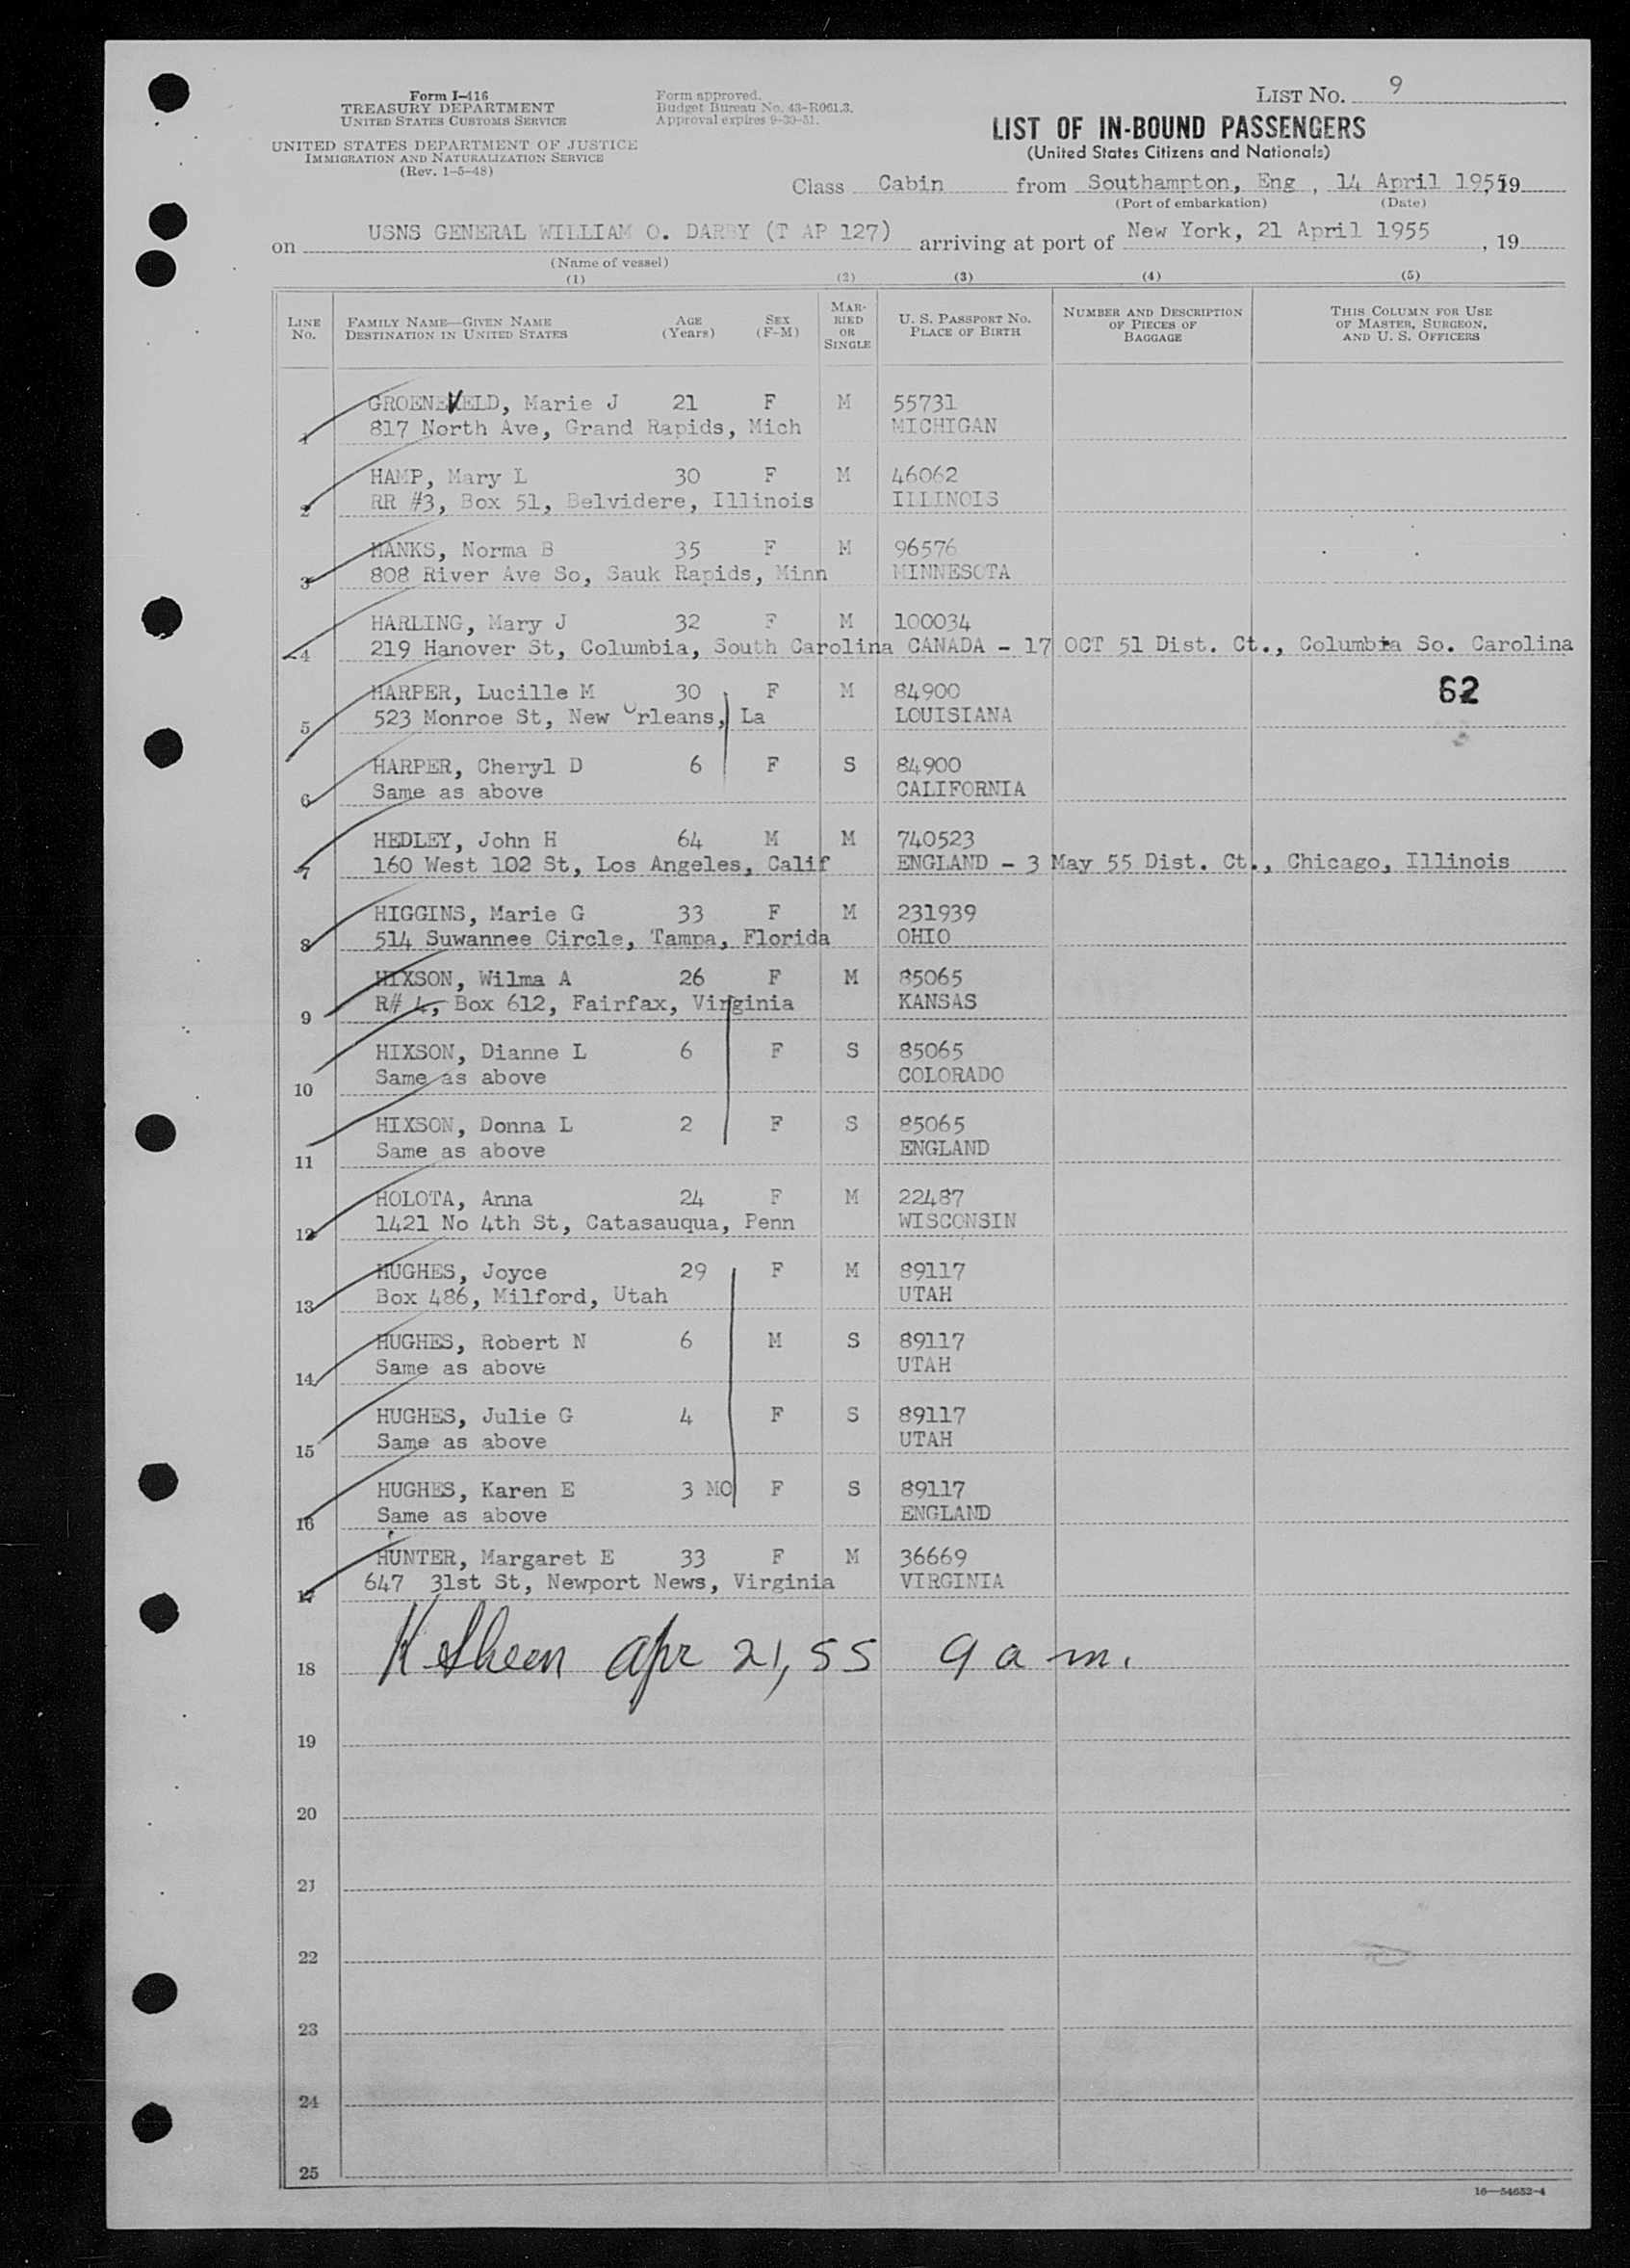 Form I-416
TREASURY DEPARTMENT
UNITED STATES CUSTOMS SERVICE
UNITED STATES DEPARTMENT OF JUSTICE
IMMIGRATION AND NATURALIZATION SERVICE
(Rev. 1-5-48)
Form approved.
Budget Bureau No. 43-R061.3.
Approval expires 9-30-51.
LIST NO. 9
LIST OF IN-BOUND PASSENGERS
(United States Citizens and Nationals)
Class Cabin from Southampton, Eng , 14 April 1955, 19
(Port of embarkation) (Date)
on USNS GENERAL WILLIAM O. DARBY (T AP 127) arriving at port of New York, 21 April 1955 , 19
(Name of vessel)
(1) (2) (3) (4) (5)
LINE NO. FAMILY NAME—GIVEN NAME DESTINATION IN UNITED STATES AGE (Years) SEX (F-M) MARRIED OR SINGLE U. S. PASSPORT NO. PLACE OF BIRTH NUMBER AND DESCRIPTION OF PIECES OF BAGGAGE THIS COLUMN FOR USE OF MASTER, SURGEON, AND U. S. OFFICERS
GROENEVELD, Marie J 21 F M 55731
1 817 North Ave, Grand Rapids, Mich MICHIGAN
HAMP, Mary L 30 F M 46062
2 RR #3, Box 51, Belvidere, Illinois ILLINOIS
HANKS, Norma B 35 F M 96576
3 808 River Ave So, Sauk Rapids, Minn MINNESOTA
HARLING, Mary J 32 F M 100034
4 219 Hanover St, Columbia, South Carolina CANADA - 17 OCT 51 Dist. Ct., Columbia So. Carolina
HARPER, Lucille M 30 F M 84900 62
5 523 Monroe St, New Orleans, La LOUISIANA
HARPER, Cheryl D 6 F S 84900
6 Same as above CALIFORNIA
HEDLEY, John H 64 M M 740523
7 160 West 102 St, Los Angeles, Calif ENGLAND - 3 May 55 Dist. Ct., Chicago, Illinois
HIGGINS, Marie G 33 F M 231939
8 514 Suwannee Circle, Tampa, Florida OHIO
HIXSON, Wilma A 26 F M 85065
9 R# 4, Box 612, Fairfax, Virginia KANSAS
HIXSON, Dianne L 6 F S 85065
10 Same as above COLORADO
HIXSON, Donna L 2 F S 85065
11 Same as above ENGLAND
HOLOTA, Anna 24 F M 22487
12 1421 No 4th St, Catasauqua, Penn WISCONSIN
HUGHES, Joyce 29 F M 89117
13 Box 486, Milford, Utah UTAH
HUGHES, Robert N 6 M S 89117
14 Same as above UTAH
HUGHES, Julie G 4 F S 89117
15 Same as above UTAH
HUGHES, Karen E 3 MO F S 89117
16 Same as above ENGLAND
HUNTER, Margaret E 33 F M 36669
17 647 31st St, Newport News, Virginia VIRGINIA
18 Apr 21, 55 9 a m.
19
20
21
22
23
24
25
16—54652-4